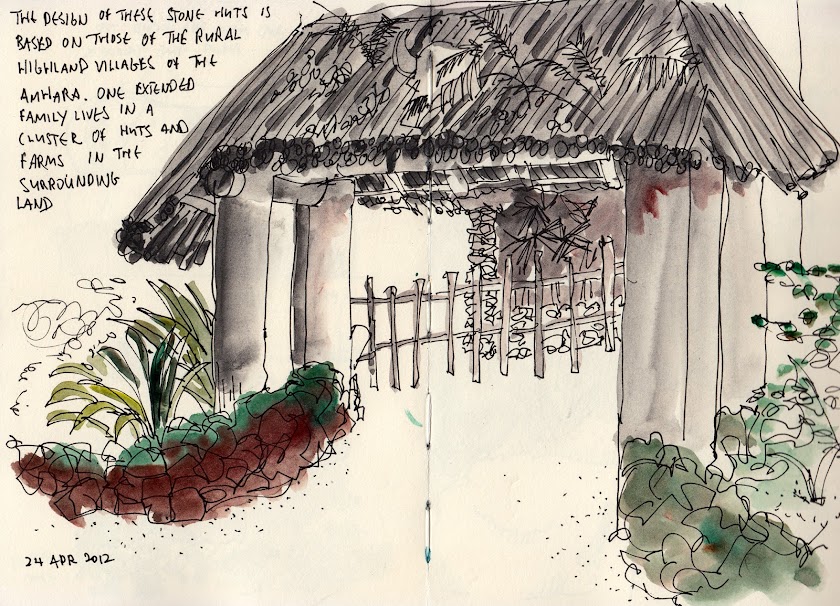 THE DESIGN OF THESE STONE HUTS IS
BASED ON THOSE OF THE RURAL
HIGHLAND VILLAGES OF THE
AMHARA. ONE EXTENDED
FAMILY LIVES IN A
CLUSTER OF HUTS AND
FARMS IN THE
SURROUNDING
LAND
24 APR 2012